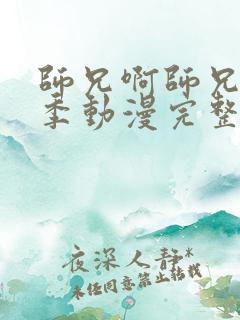 師兄啊師兄
季動漫完整
夜深人静*
未经同意禁止转载